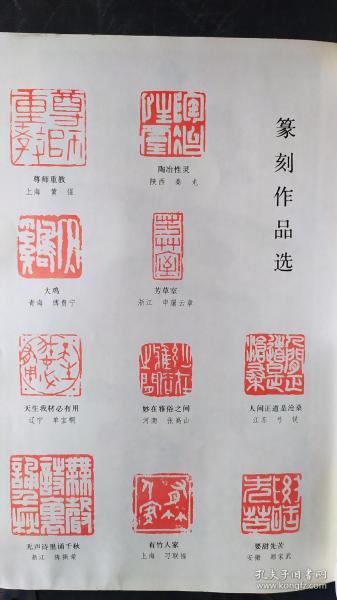 篆刻作品选
尊师重教
上海 黄 谨
陶冶性灵
陕西 秦 毛
大鸡
青海 傅贵宁
芳草室
浙江 申屠云章
天生我材必有用
辽宁 单宝桐
妙在雅俗之间
河南 张高山
人间正道是沧桑
江苏 弓 锐
无声诗里诵千秋
浙江 陈振荣
有竹人家
上海 刁联福
要甜先苦
安徽 郑宋武
孔夫子旧书网